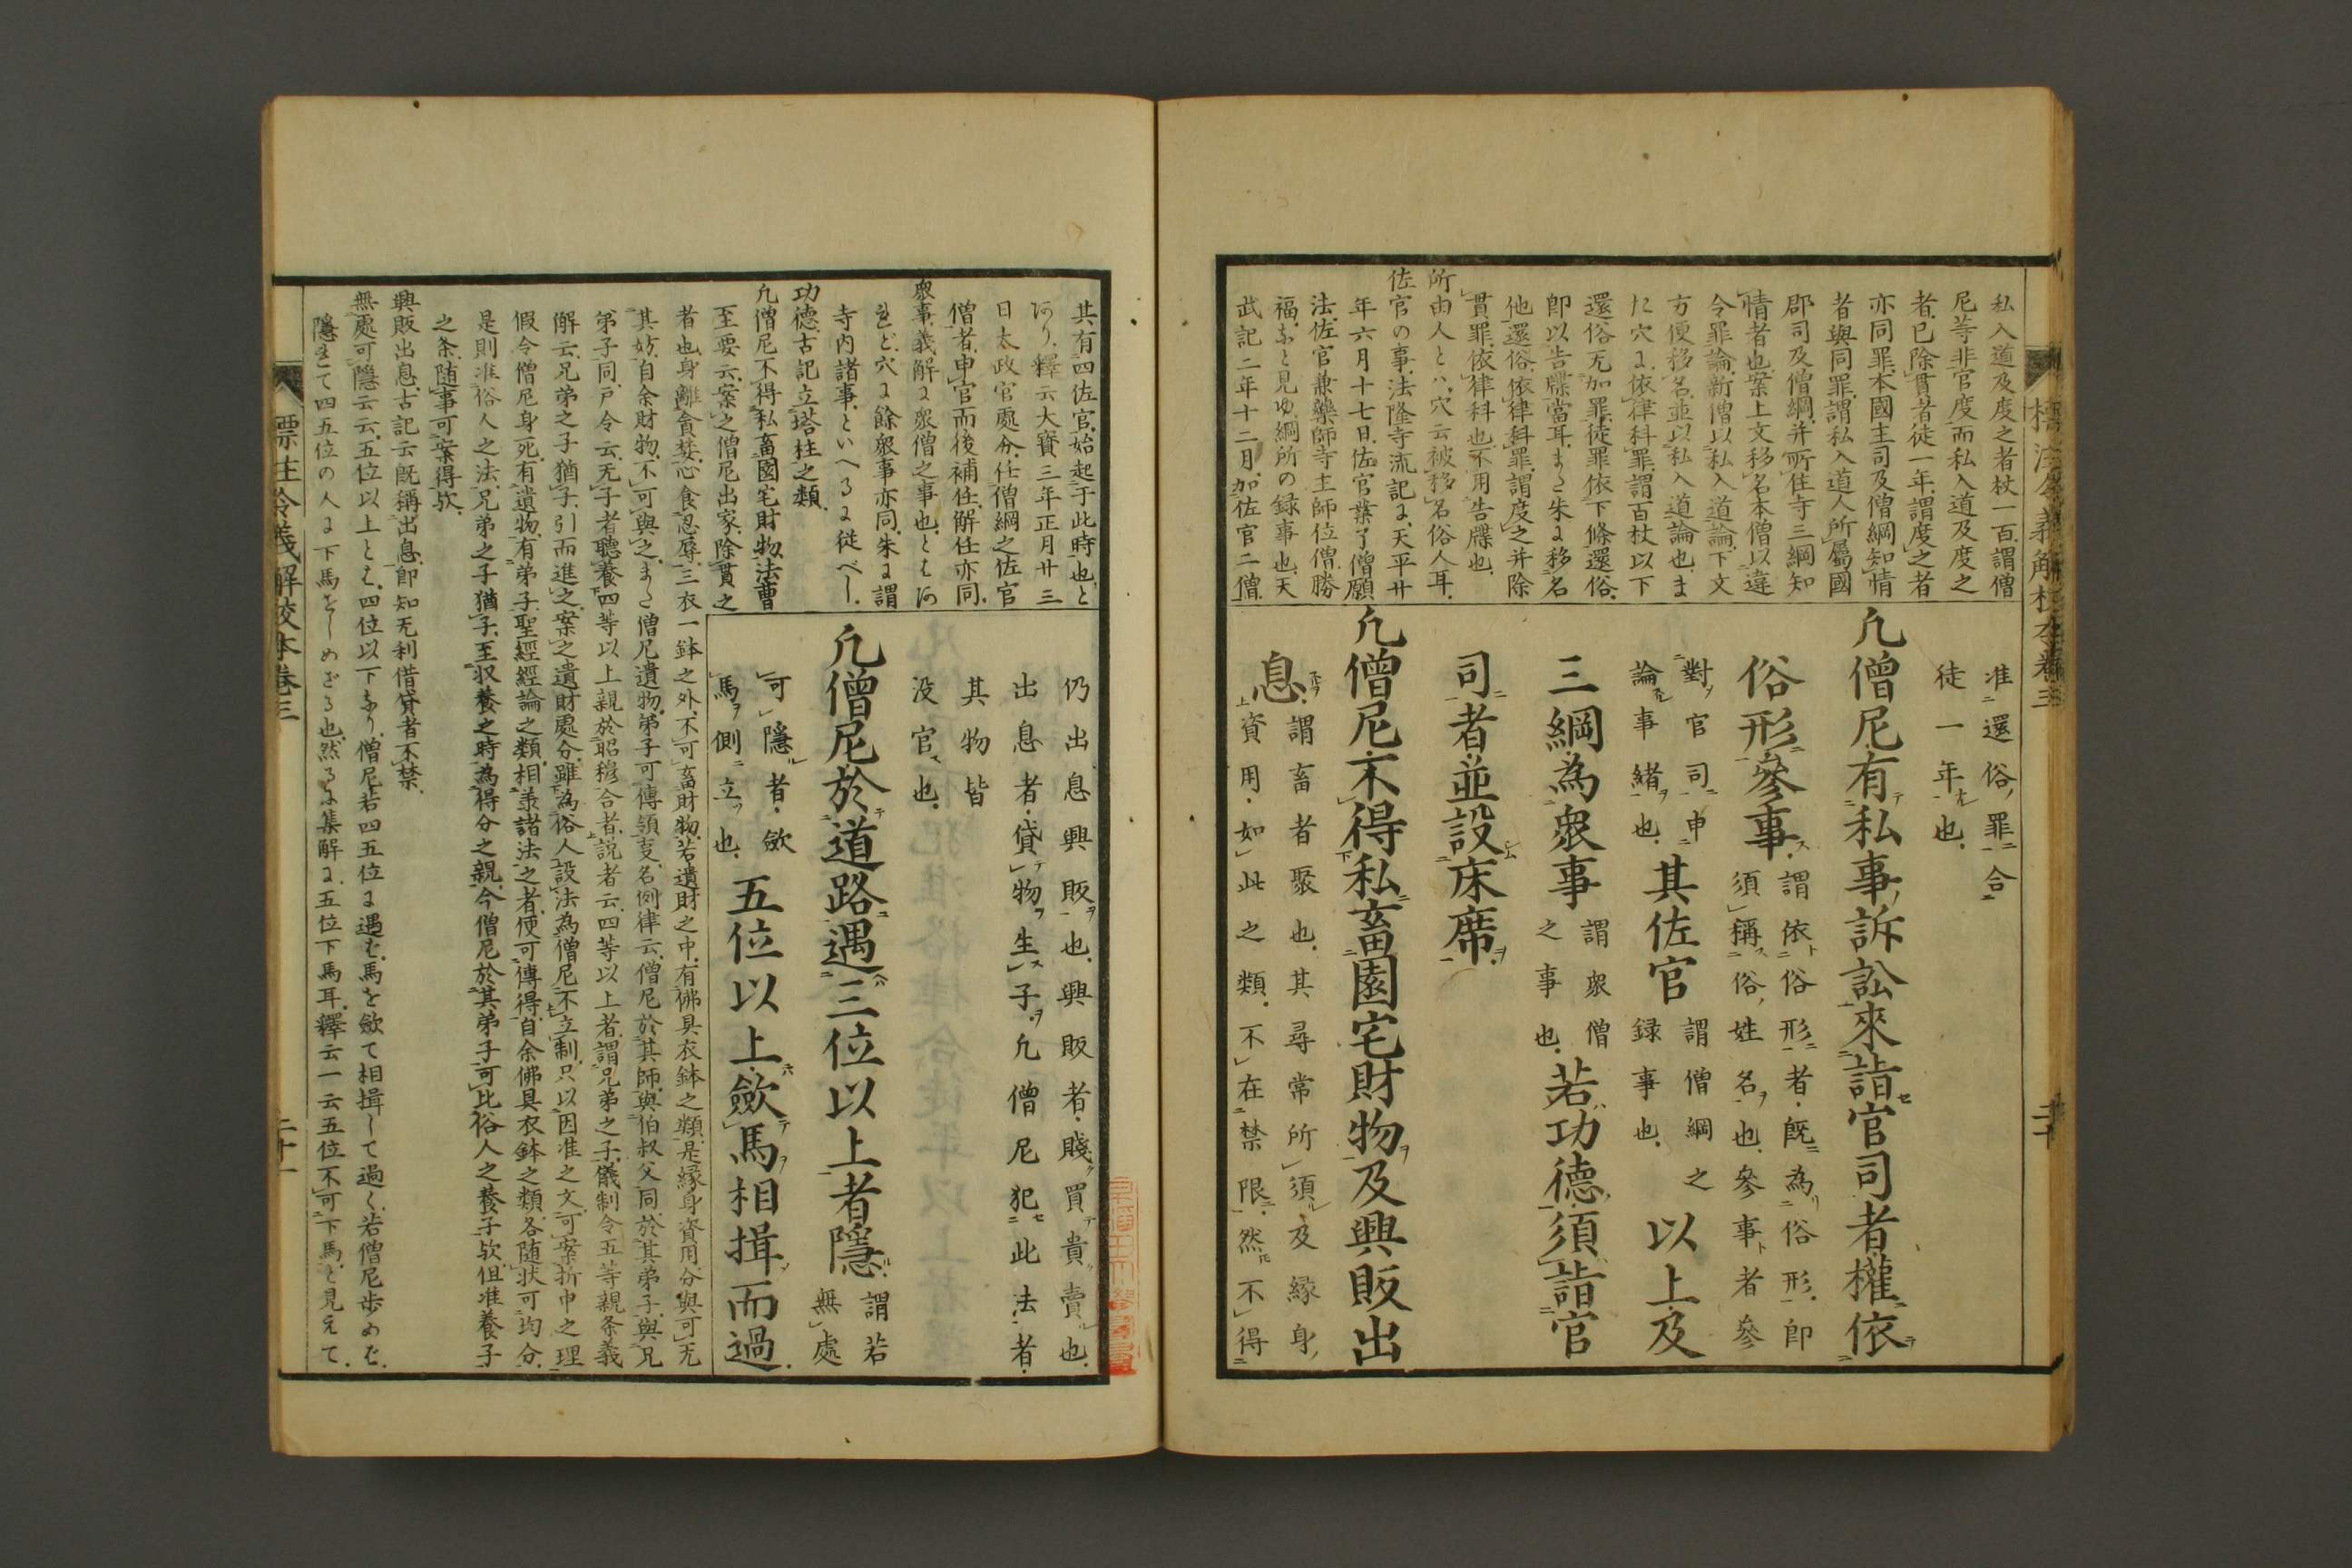 標注令義解校本卷三
二十
私入道及度之者杖一百謂僧
尼等非官度而私入道及度之
者已除貫者徒一年謂度之者
亦同罪本國主司及僧綱知情
者與同罪謂私入道人所屬國
郡司及僧綱并所住寺三綱知
情者也案上文移名本僧以違
令罪論新僧以私入道論下文
方便移名並以私入道論也ま
た穴に依律科罪謂百杖以下
還俗无加罪徒罪依下條還俗
即以告牒當耳また朱に移名
他還俗依律科罪謂度之并除
貫罪依律科也不用告牒也
所由人とハ穴云被移名俗人耳
佐官の事法隆寺流記に天平廿
年六月十七日佐官業了僧願
法佐官兼藥師寺主師位僧勝
福など見ゆ綱所の録事也天
武記二年十二月加佐官二僧
准還俗罪合
徒一年也
凢僧尼有私事訴訟來詣官司者權依
俗形參事謂依俗形者既為俗形即
須稱俗姓名也參事者參
對官司申
論事緒也其佐官謂僧綱之
録事也以上及
三綱為衆事謂衆僧
之事也若功德須詣官
司者並設床席
凢僧尼不得私畜園宅財物及興販出
息謂畜者聚也其尋常所須及縁身
資用如此之類不在禁限然不得
其有四佐官始起于此時也と
あり釋云大寶三年正月廿三
日太政官處分任僧綱之佐官
僧者申官而後補任解任亦同
衆事義解に衆僧之事也ともあ
れど穴に餘衆事亦同朱に謂
寺内諸事といへるに従べし
功德古記立塔柱之類
凢僧尼不得私畜園宅財物法曹
至要云案之僧尼出家除貫之
者也身離貪婪心食忍辱三衣一鉢之外不可畜財物若遺財之中有佛具衣鉢之類是縁身資用分與可无
其妨自余財物不可與之また僧尼遺物弟子可傳領㕝名例律云僧尼於其師與伯叔父同於其弟子與兄
弟子同戸令云无子者聽養四等以上親於昭穆合者説者云四等以上者謂兄弟之子儀制令五等親条義
解云兄弟之子猶子引而進之案之遺財處分雖為俗人設法為僧尼不立制只以因准之文可案折中之理
假令僧尼身死有遺物有弟子聖經經論之類相羕諸法之者便可傳得自余佛具衣鉢之類各随状可均分
是則准俗人之法兄弟之子猶子至収養之時為得分之親今僧尼於其弟子可比俗人之養子欤但准養子
之条随事可案得欤
興販出息古記云既稱出息即知无利借貸者不禁
無處可隱云云五位以上とも四位以下なり僧尼若四五位に遇ば馬を歛て相揖して過く若僧尼歩めば
隱れて四五位の人に下馬をしめざる也然るに集解に五位下馬耳釋云一云五位不可下馬と見えて
仍出息興販也興販者賤買貴賣也
出息者貸物生子凢僧尼犯此法者
其物皆
没官也
凢僧尼於道路遇三位以上者隱謂若
無處
可隱者歛
馬側立也五位以上歛馬相揖而過
標注令義解校本卷三
二十一